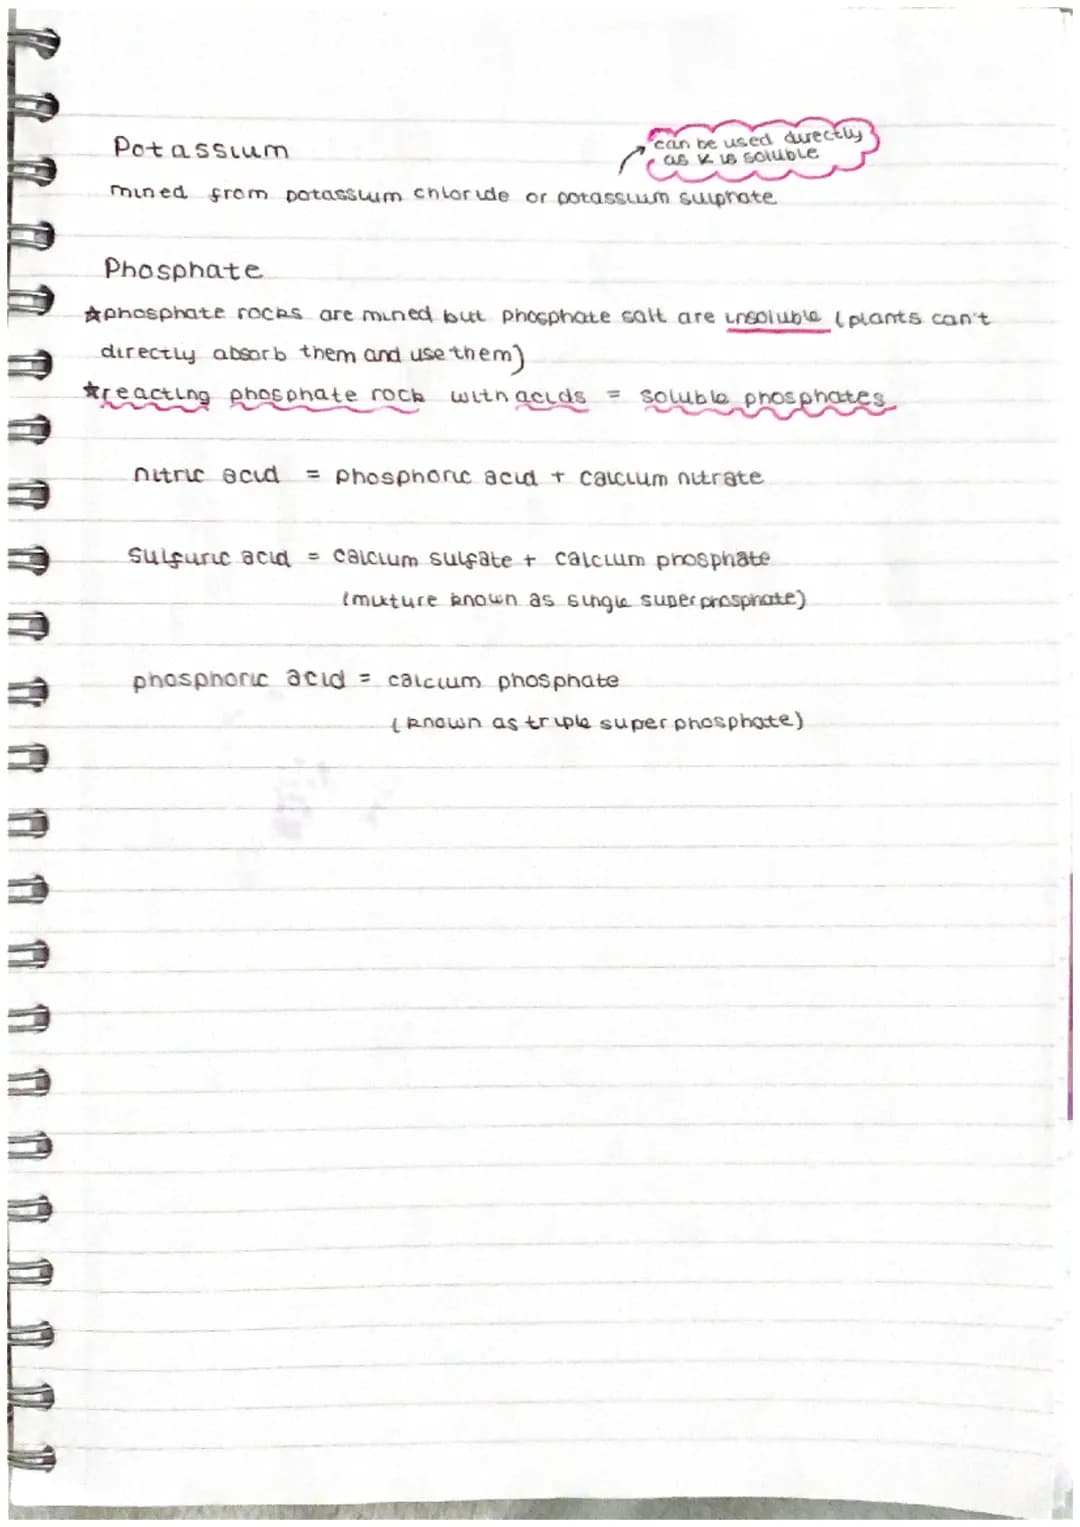 Potassium
can be used directly
as K is soluble
mined from potassium chloride or potassium sulphate
Phosphate
☆phosphate rocks are mined but phosphate salt are insoluble (plants can't
directly absorb them and use them)
☆reacting phosphate rock with acids = soluble phosphates
nitric acid = phosphoric acid + calcium nitrate
Sulfuric acid = calcium sulfate + calcium phosphate
(mixture known as single superphosphate)
phosphoric acid = calcium phosphate
(known as triple superphosphate)